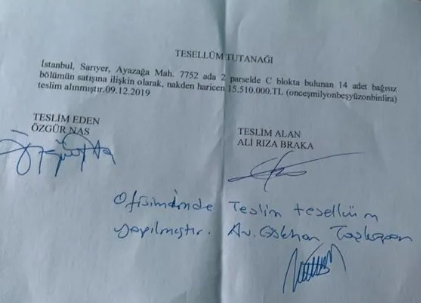 TESELLÜM TUTANAĞI
İstanbul, Sarıyer, Ayazağa Mah. 7752 ada 2 parselde C blokta bulunan 14 adet bağımsız
bölümün satışına ilişkin olarak, nakden haricen 15.510.000.TL (onbeşmilyonbeşyüzonbinlira)
teslim alınmıştır.09.12.2019
TESLİM EDEN
ÖZGÜR NAS
TESLİM ALAN
ALİ RIZA BRAKA
Ofisimde Teslim tesellüm
yapılmıştır. Av. Gökhan